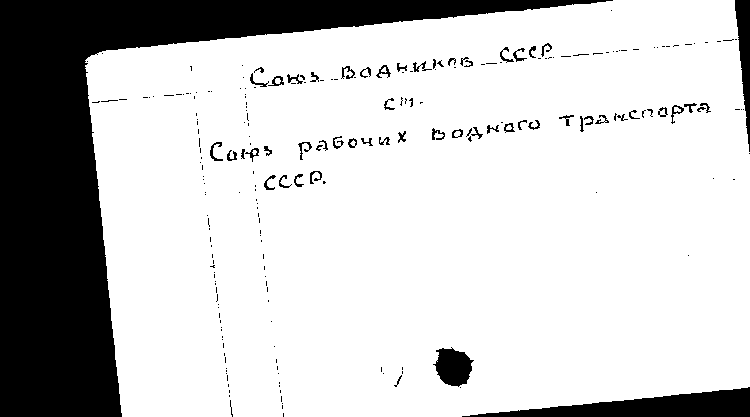 Союз водников СССР
см.
Союз рабочих водного транспорта
СССР.